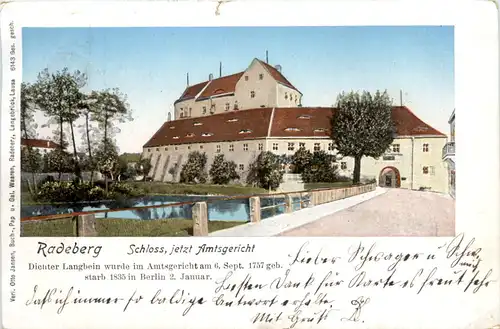 Verl. Otto Jansen, Buch-, Pap u. Gal. Waaren, Radebrg, Langebrück, Lausa 6143 Ges. gesch.
Radeberg Schloss, jetzt Amtsgericht.
Dichter Langbein wurde im Amtsgericht am 6. Sept. 1757 geb.
starb 1835 in Berlin 2. Januar.
Lieber Schwager u
Besten Dank für Karte es freut sehr
daß ich immer so baldige Antwort erhalte.
Mit Gruß